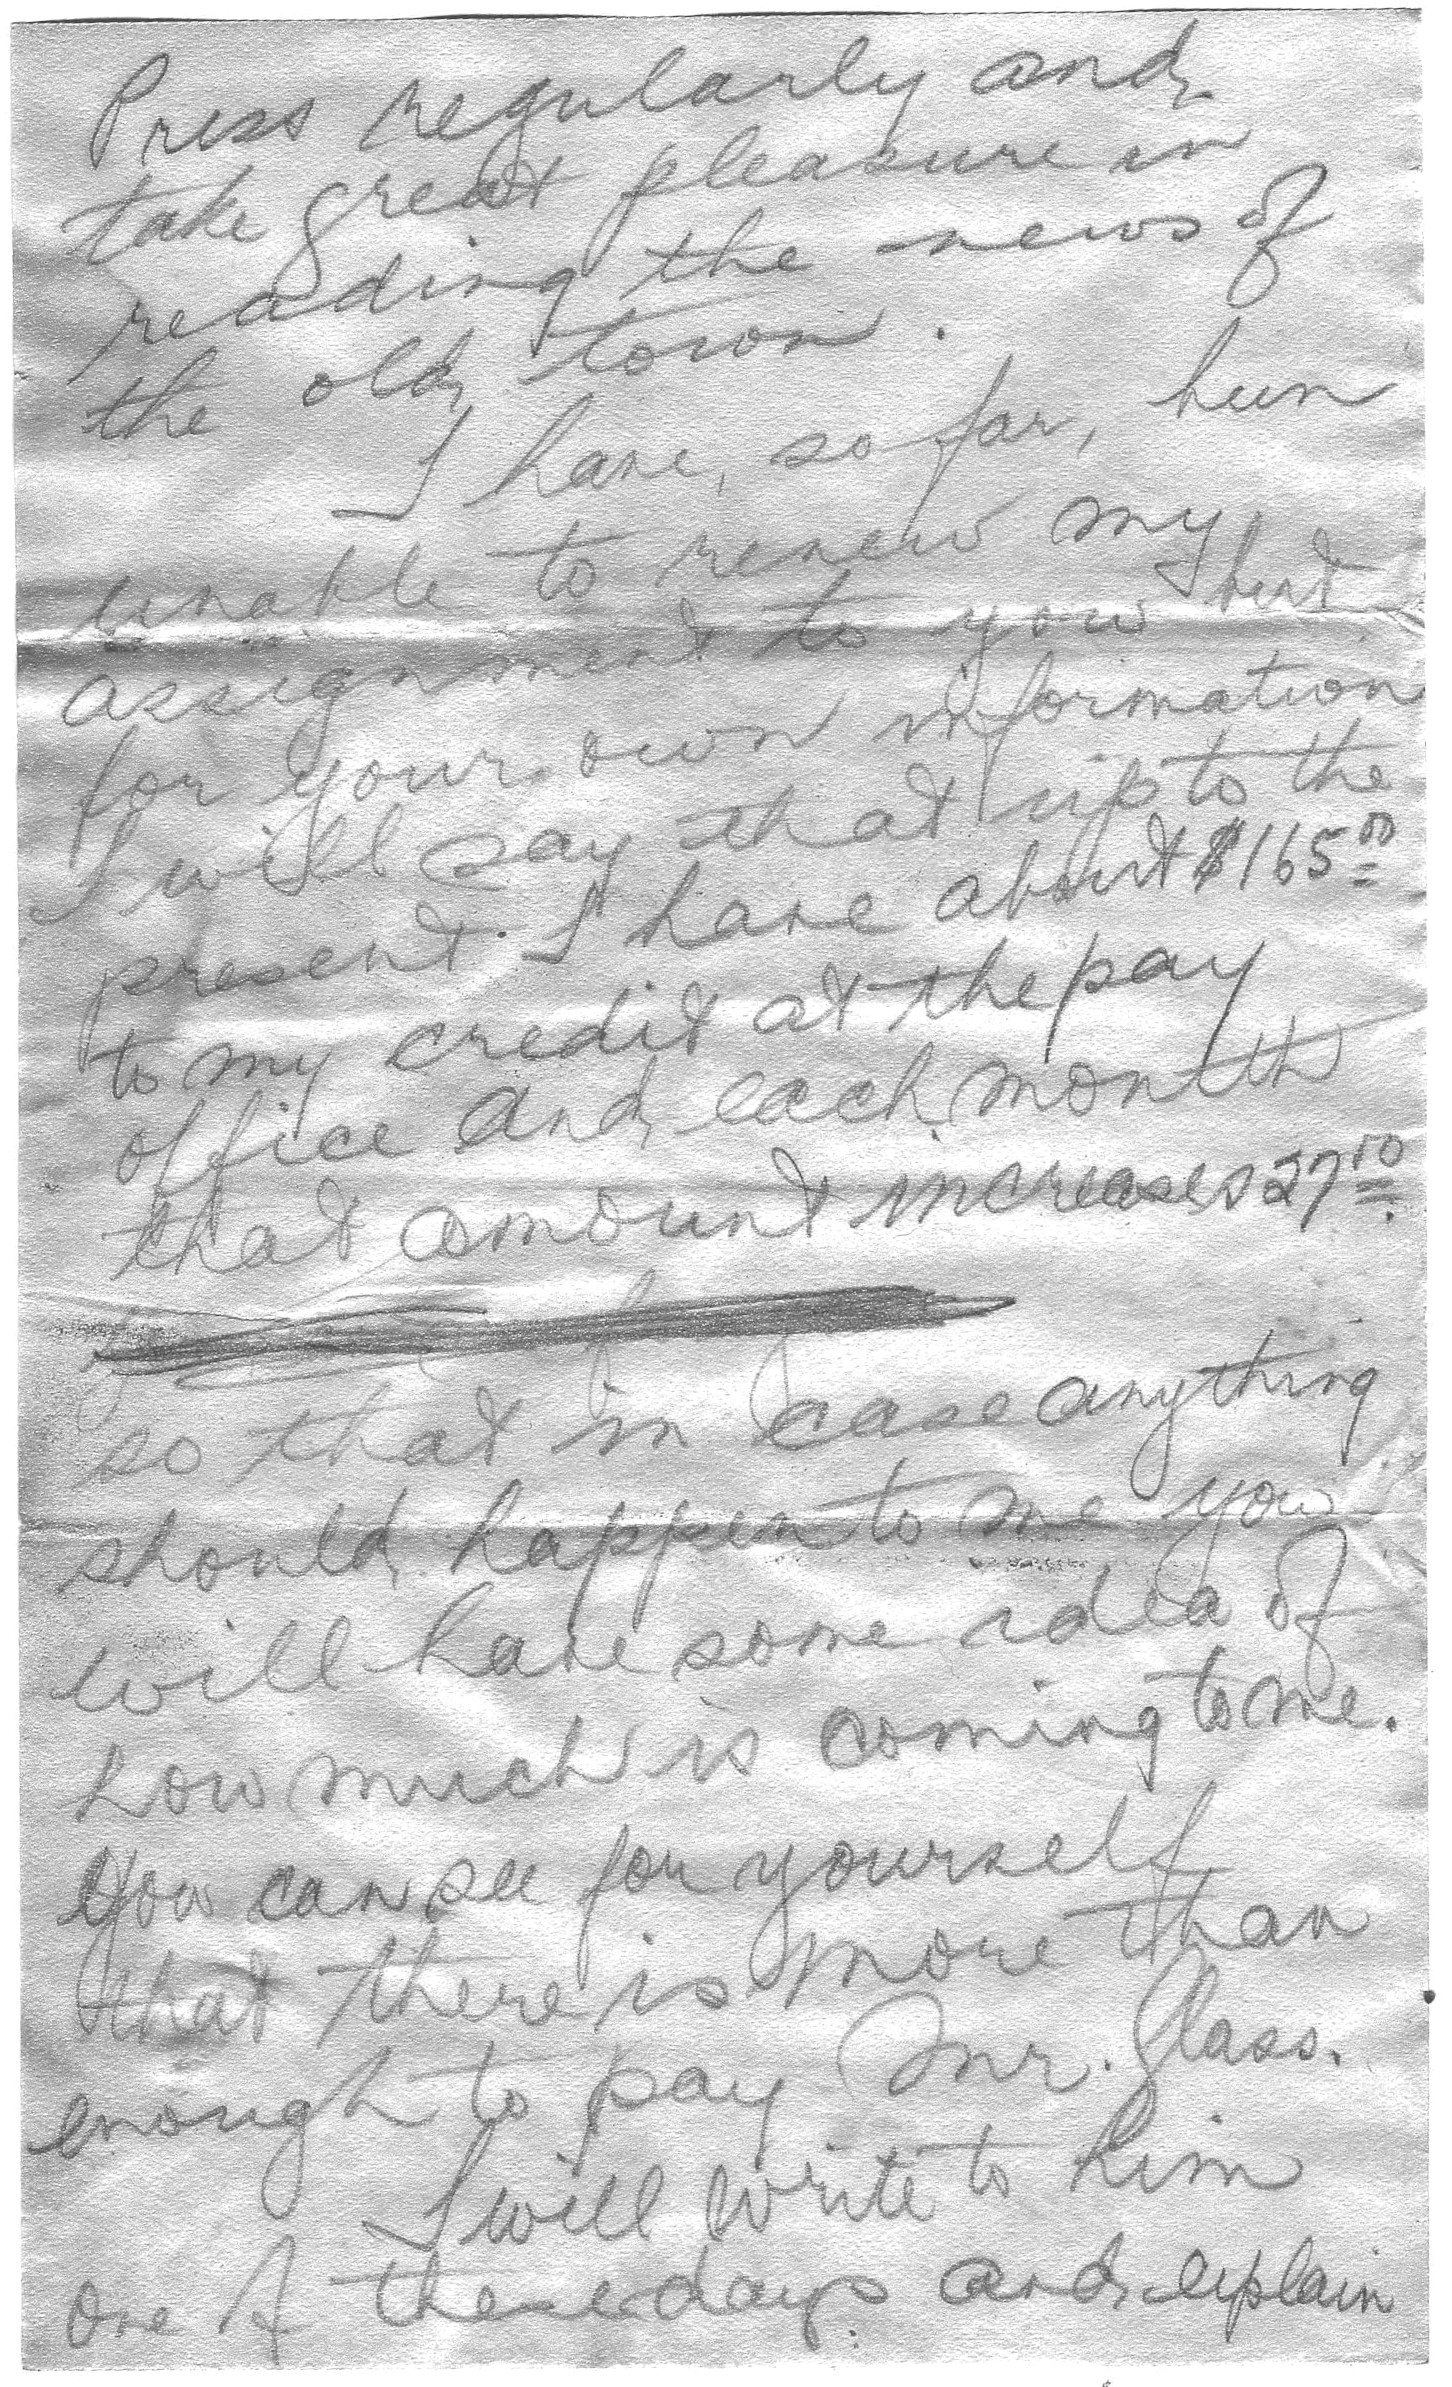 Press regularly and
take great pleasure in
reading the news of
the old town.
I have, so far, been
unable to renew my
assignment to you but
for your own information
I will say that up to the
present I have about $165 00
to my credit at the pay
office and each month
that amount increases 27 10.
so that in case anything
should happen to me you
will have some idea of
how much is coming to me.
You can see for yourself
that there is more than
enough to pay Mr. Glass.
I will write to him
one of these days and explain